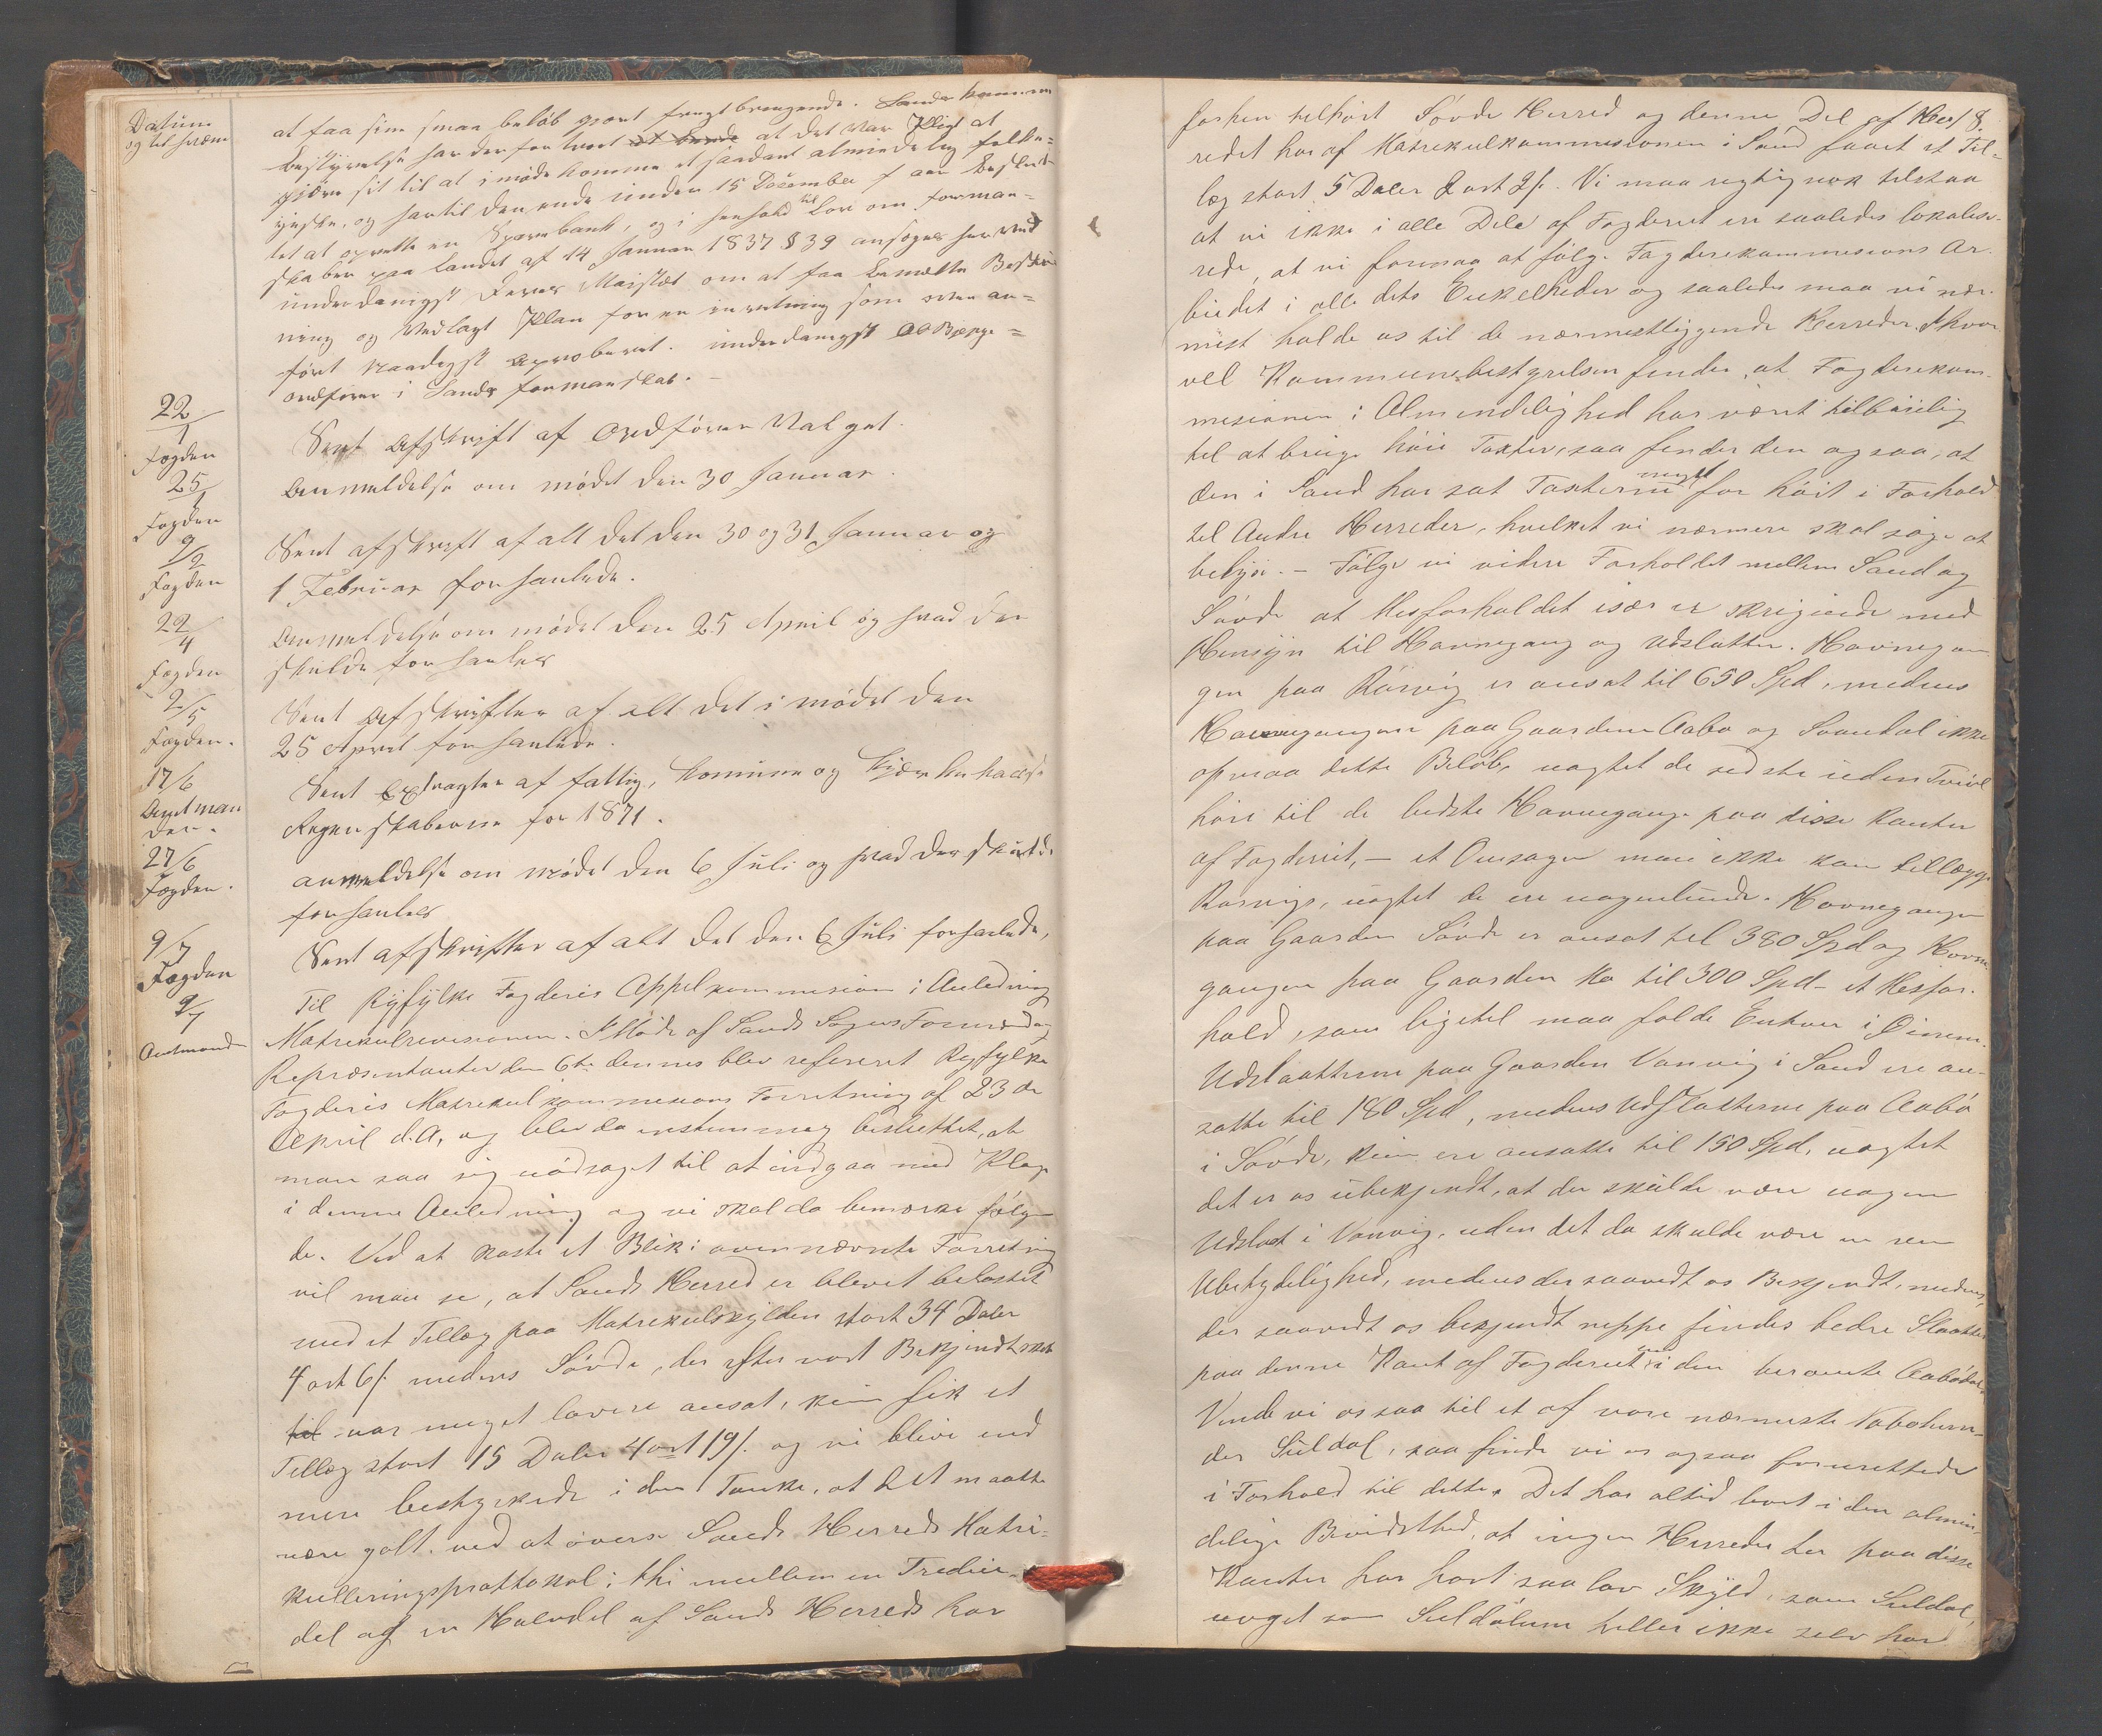 Datum
og til hvem
at faa sine smaa beløb gjort frugtbringende. Sands kommune
bestyrelse har derfor troet at burde at det var Pligt at
gjøre sit til at imødekomme et saadant almindelig følt
ynske, og har til den ende under 15 December f aar besluttet
at oprette en Sparebank, og i henhold til Lov om forman=
skaber paa landet af 14 Januar 1837 § 39 ansøges herved
underdanigst Deres Majstæt om at faa bemelte Beslut
ning og Vedlagt Plan for en inretning som oven an=
ført naadigst Aproberet. underdanigst
ordfører i Sands formanskab. –
22/1
Fogden
Sent Afskrift af Ordfører Valget.
25/1
Fogden
Anmeldelse om mødet den 30 Januar.
9/2
Fogden
Sent afskrift af alt det den 30 og 31 Januar og
1 Februar forhanlede.
22/4
Fogden
Anmeldelse om mødet den 25 April og hvad der
skulde forhanles
2/5
Fogden.
Sent Afskrifter af alt det i mødet den
25 April forhanlede.
17/6
Amtman
den.
Sent Extragter af fattig, komune og
Regenskaberne for 1871.
27/6
Fogden.
anmeldelse om mødet den 6 Juli og hvad der skulde
forhanles
9/7
Fogden
Sent afskrifter af alt det den 6 Juli forhanlede,
9/7
Amtmand
Til Ryfylke Fogderis Appelkommision i Anledning
Matrekulrevisionen. I Møde af Sands Sogns Formænd og
Repræsentanter den 6te dennes blev refereret Ryfylke
Fogderis Matrekulkommisions Forretning af 23de
April d.A, og blev da enstemmig besluttet, at
man saa sig nødsaget til at indgaa med Klage
i denne Anledning og vi skal da bemærke følgen
de. Ved at kaste et Blik i ovennævnte Forretning
vil man se, at Sands Herred er blevet belastet
med et Tillæg paa Matrekulskylden stort 34 Daler
4 ort 6 s. medens Søvde, der efter vort Bekjendtskab
til var meget lavere ansat, kun fik et
Tillæg stort 15 Daler 4 ort 19 s. og vi blive end
mere bestyrkede i den Tanke, at det maatte
være galt ved at overse Sands Herreds Matri=
kulleringsprottokol; thi mellem en Tredie-
del og en Halvdel af Sands Herred har
8.
forhen tilhørt Søvde Herred og denne Del af Her
redet har af Matrekulkommisionen i Sand faaet et Til=
læg stort 5 Daler 2 ort 2 s. Vi maa rigtignok tilstaa
at vi ikke i alle Dele af Fogderiet ere saaledes lokalise-
rede, at vi formaa at følge Fogderikommisions Ar-
beidet i alle dets Enkelheder og saaledes maa vi nær-
mest holde os til de nærmestliggende Herreder. Ihvor
vel Kommunebestyrelsen finder, at Fogderikom-
misionen i Almindelighed har været tilbøielig
til at bringe høie Taxter, saa finder den ogsaa, at
den i Sand har sat Taxterne meget for høit i Forhold
til Andre Herreder, hvilket vi nærmere skal søge at
belyse. – Følge vi videre Forholdet mellem Sand og
Søvde at Misforholdet især er skrigende med
Hensyn til Havnegang og Udslatter. Havnegan
gen paa Rørvig er ansat til 650 Spd, medens
Havnegangene paa Gaardene Aabø og Svandal ikke
opnaa dette Beløb, uagtet de sidste uden Tvivl
høre til de bedste Havnegange paa disse Kanter
af Fogderiet, – et Omsagn man ikke kan tillægge
Rørvigs, uagtet de ere nogenlunde. Havnegangen
paa Gaarden Søvde er ansat til 380 Spd og Havne
gangen paa Gaarden Ro til 300 Spd – et Misfor-
hold, som ligetil maa falde Enhver i Øinene.
Udslaatterne paa Gaarden Vanvig i Sand ere an-
satte til 180 Spd, medens Udslatterne paa Aabø
i Søvde, kun ere ansatte til 150 Spd, uagtet
det er os ubekjendt, at der skulde være nogen
Udslaat i Vanvig, uden det da skulde være en ren
Ubetydelighed, medens der saavidt os Bekjendt, medens,
der saavidt os bekjendt neppe findes bedre Slaatter
paa denne Kant af Fogderiet end i den berømte Aabødal.
Vende vi os saa til et af vore nærmeste Naboherre-
der Suldal, saa finde vi os ogsaa forurettede
i Forhold til dette. Det har altid levet i den almin-
delige Bevidsthed, at ingen Herreder her paa disse
Kanter har havt saa lav Skyld, som Suldal,
noget som Suldølerne heller ikke selv har